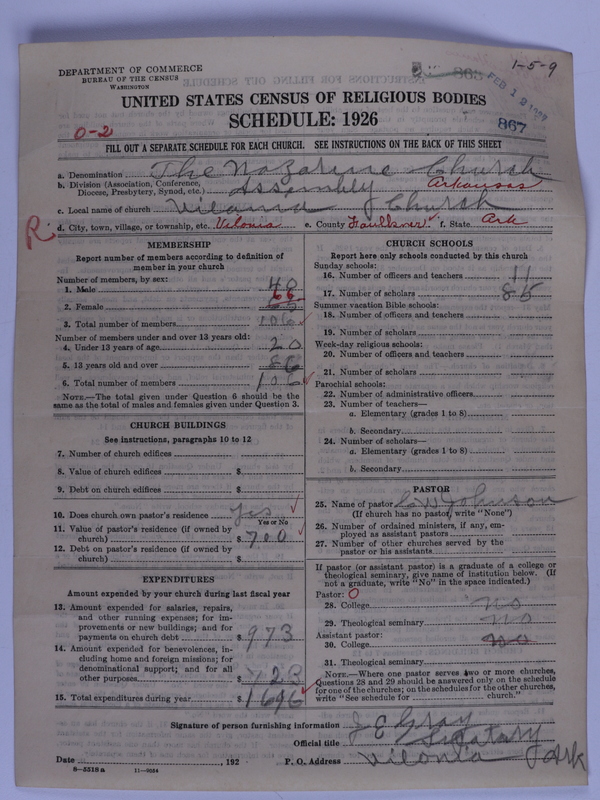 DEPARTMENT OF COMMERCE
BUREAU OF THE CENSUS
WASHINGTON
1-5-9
FEB 1 1927
867
UNITED STATES CENSUS OF RELIGIOUS BODIES
SCHEDULE: 1926
0-2
FILL OUT A SEPARATE SCHEDULE FOR EACH CHURCH. SEE INSTRUCTIONS ON THE BACK OF THIS SHEET
a. Denomination The Nazarine Church
b. Division (Association, Conference, Diocese, Presbytery, Synod, etc.) Assembly Arkansas
c. Local name of church Vilonia Church
R. d. City, town, village, or township, etc. Vilonia e. County Faulkner f. State Ark
MEMBERSHIP
Report number of members according to definition of
member in your church
Number of members, by sex:
1. Male 40
2. Female 66
3. Total number of members 106
Number of members under and over 13 years old:
4. Under 13 years of age 20
5. 13 years old and over 86
6. Total number of members 106
NOTE.—The total given under Question 6 should be the
same as the total of males and females given under Question 3.
CHURCH BUILDINGS
See instructions, paragraphs 10 to 12
7. Number of church edifices
8. Value of church edifices $
9. Debt on church edifices $
10. Does church own pastor's residence yes
Yes or No
11. Value of pastor's residence (if owned by
church) $ 700
12. Debt on pastor's residence (if owned by
church) $
EXPENDITURES
Amount expended by your church during last fiscal year
13. Amount expended for salaries, repairs,
and other running expenses; for im-
provements or new buildings; and for
payments on church debt $ 973
14. Amount expended for benevolences, in-
cluding home and foreign missions; for
denominational support; and for all
other purposes $ 723
15. Total expenditures during year $ 1696
CHURCH SCHOOLS
Report here only schools conducted by this church
Sunday schools:
16. Number of officers and teachers 11
17. Number of scholars 85
Summer vacation Bible schools:
18. Number of officers and teachers
19. Number of scholars
Week-day religious schools:
20. Number of officers and teachers
21. Number of scholars
Parochial schools:
22. Number of administrative officers
23. Number of teachers—
a. Elementary (grades 1 to 8)
b. Secondary
24. Number of scholars—
a. Elementary (grades 1 to 8)
b. Secondary
PASTOR
25. Name of pastor Johnson
(If church has no pastor, write "None")
26. Number of ordained ministers, if any, em-
ployed as assistant pastors
27. Number of other churches served by the
pastor or his assistants
If pastor (or assistant pastor) is a graduate of a college or
theological seminary, give name of institution below. (If
not a graduate, write "No" in the space indicated.)
Pastor: O
28. College no
29. Theological seminary no
Assistant pastor:
30. College no
31. Theological seminary
NOTE.—Where one pastor serves two or more churches,
Questions 28 and 29 should be answered only on the schedule
for one of the churches; on the schedules for the other churches,
write "See schedule for church."
Signature of person furnishing information J E Gray
Official title
Date , 192 P. O. Address Vilonia Ark
8-5518 a 11-9054